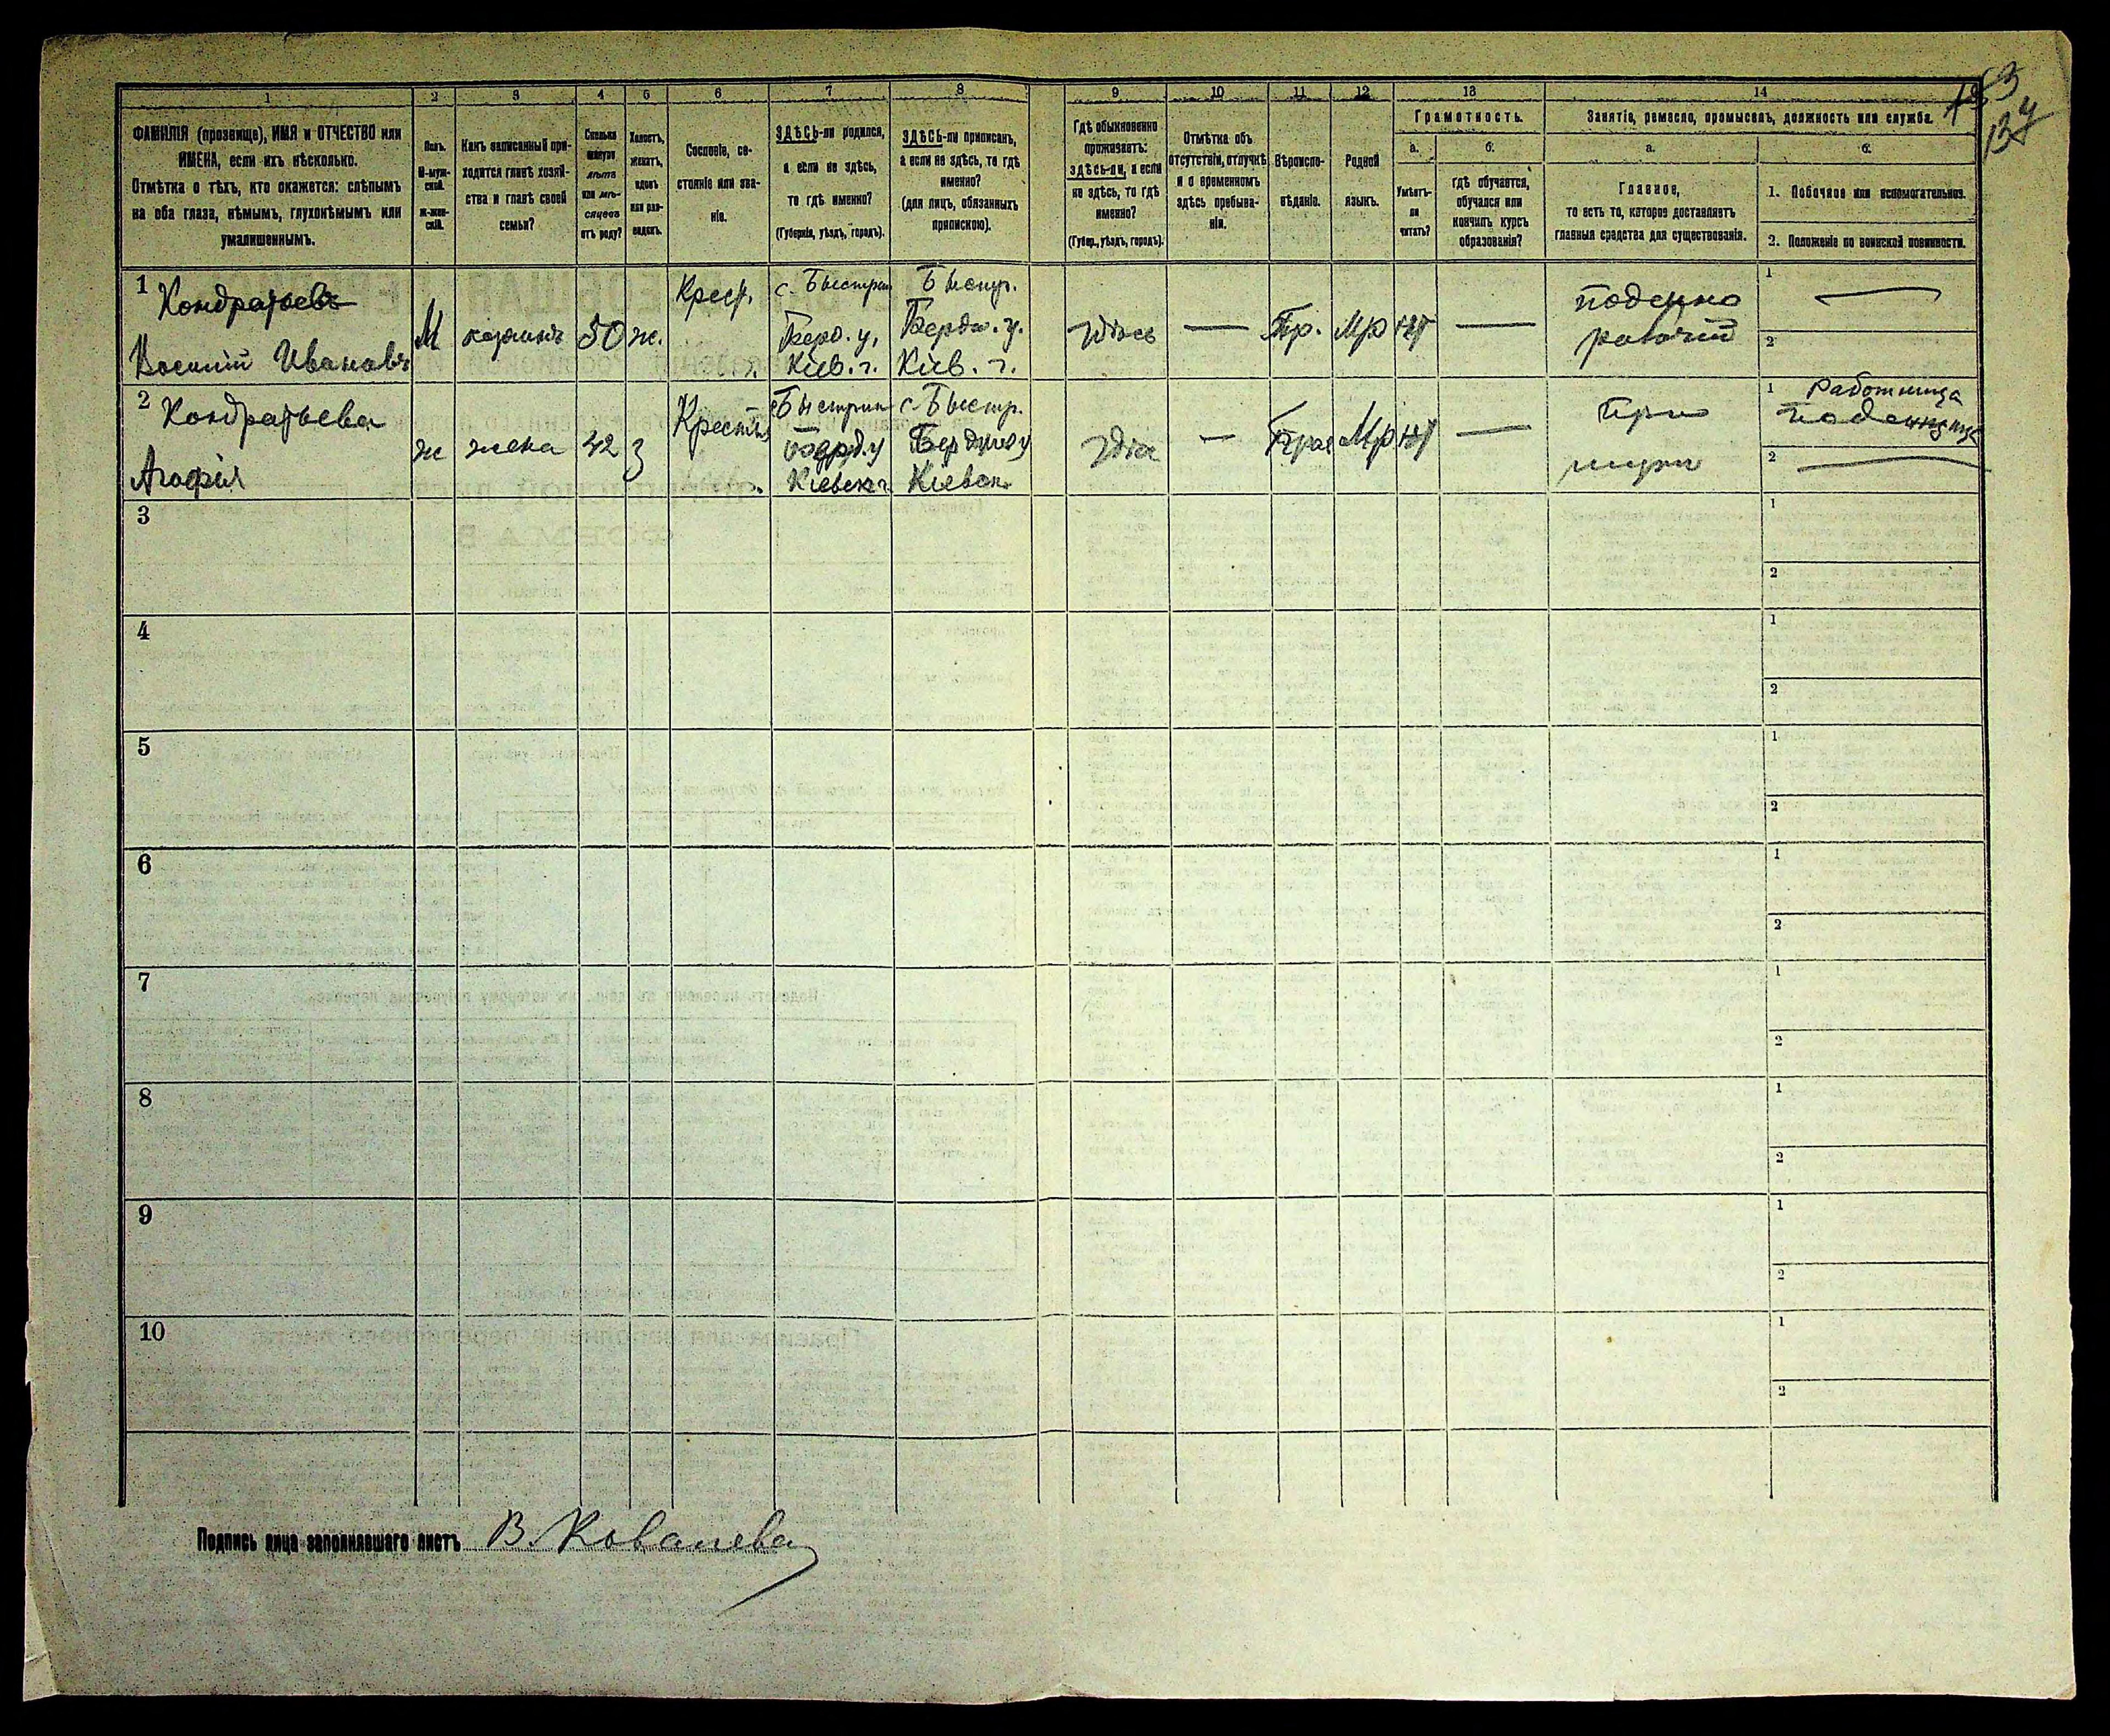 1 2 3 4 5 6 7 8 9 10 11 12 13 14
ФАМИЛІЯ (прозвище), ИМЯ и ОТЧЕСТВО или
ИМЕНА, если ихъ нѣсколько.
Отмѣтка о тѣхъ, кто окажется: слѣпымъ
на оба глаза, нѣмымъ, глухонѣмымъ или
умалишеннымъ.
Полъ.
М-муж-
ской.
Ж-жен-
скій.
Какъ записанный при-
ходится главѣ хозяй-
ства и главѣ своей
семьи?
Сколько
минуло
лѣтъ
или мѣ-
сяцевъ
отъ роду?
Холостъ,
женатъ,
вдовъ
или раз-
веденъ.
Сословіе, со-
стояніе или зва-
ніе.
ЗДѢСЬ-ли родился,
а если не здѣсь,
то гдѣ именно?
(Губернія, уѣздъ, городъ).
ЗДѢСЬ-ли приписанъ,
а если не здѣсь, то гдѣ
именно?
(для лицъ, обязанныхъ
припискою).
Гдѣ обыкновенно
проживаетъ:
здѣсь-ли, а если
не здѣсь, то гдѣ
именно?
(Губер., уѣздъ, городъ).
Отмѣтка объ
отсутствіи, отлучкѣ
и о временномъ
здѣсь пребыва-
ніи.
Вѣроиспо-
вѣданіе.
Родной
языкъ.
Грамотность.
а.
Умѣетъ-
ли
читать?
б.
Гдѣ обучается,
обучался или
кончилъ курсъ
образованія?
Занятіе, ремесло, промыселъ, должность или служба.
а.
Главное,
то есть то, которое доставляетъ
главныя средства для существованія.
б.
1. Побочное или вспомогательное.
2. Положеніе по воинской повинности.
1 Кондратьевъ
Василій Ивановъ
М
хозяинъ
50
ж.
Крест.
с. Быстрик
Берд. у.
Кіев. г.
Быстр.
Бердич. у.
Кіев. г.
здѣсь
—
Пр.
Мр
нѣт
—
поденно
рабочій
1 —
2
2 Кондратьева
Агафія
ж
жена
42
З
Крестьян
Быстрик
Берд. у
Кіевск. г.
с. Быстр.
Бердич у
Кіевск.
Здѣс
—
Прав
Мр
нѣт
—
При
мужи
1 Работница
поденщица
2 —
3
1
2
4
1
2
5
1
2
6
1
2
7
1
2
8
1
2
9
1
2
10
1
2
Подпись лица заполнявшаго листъ В. Ковалева